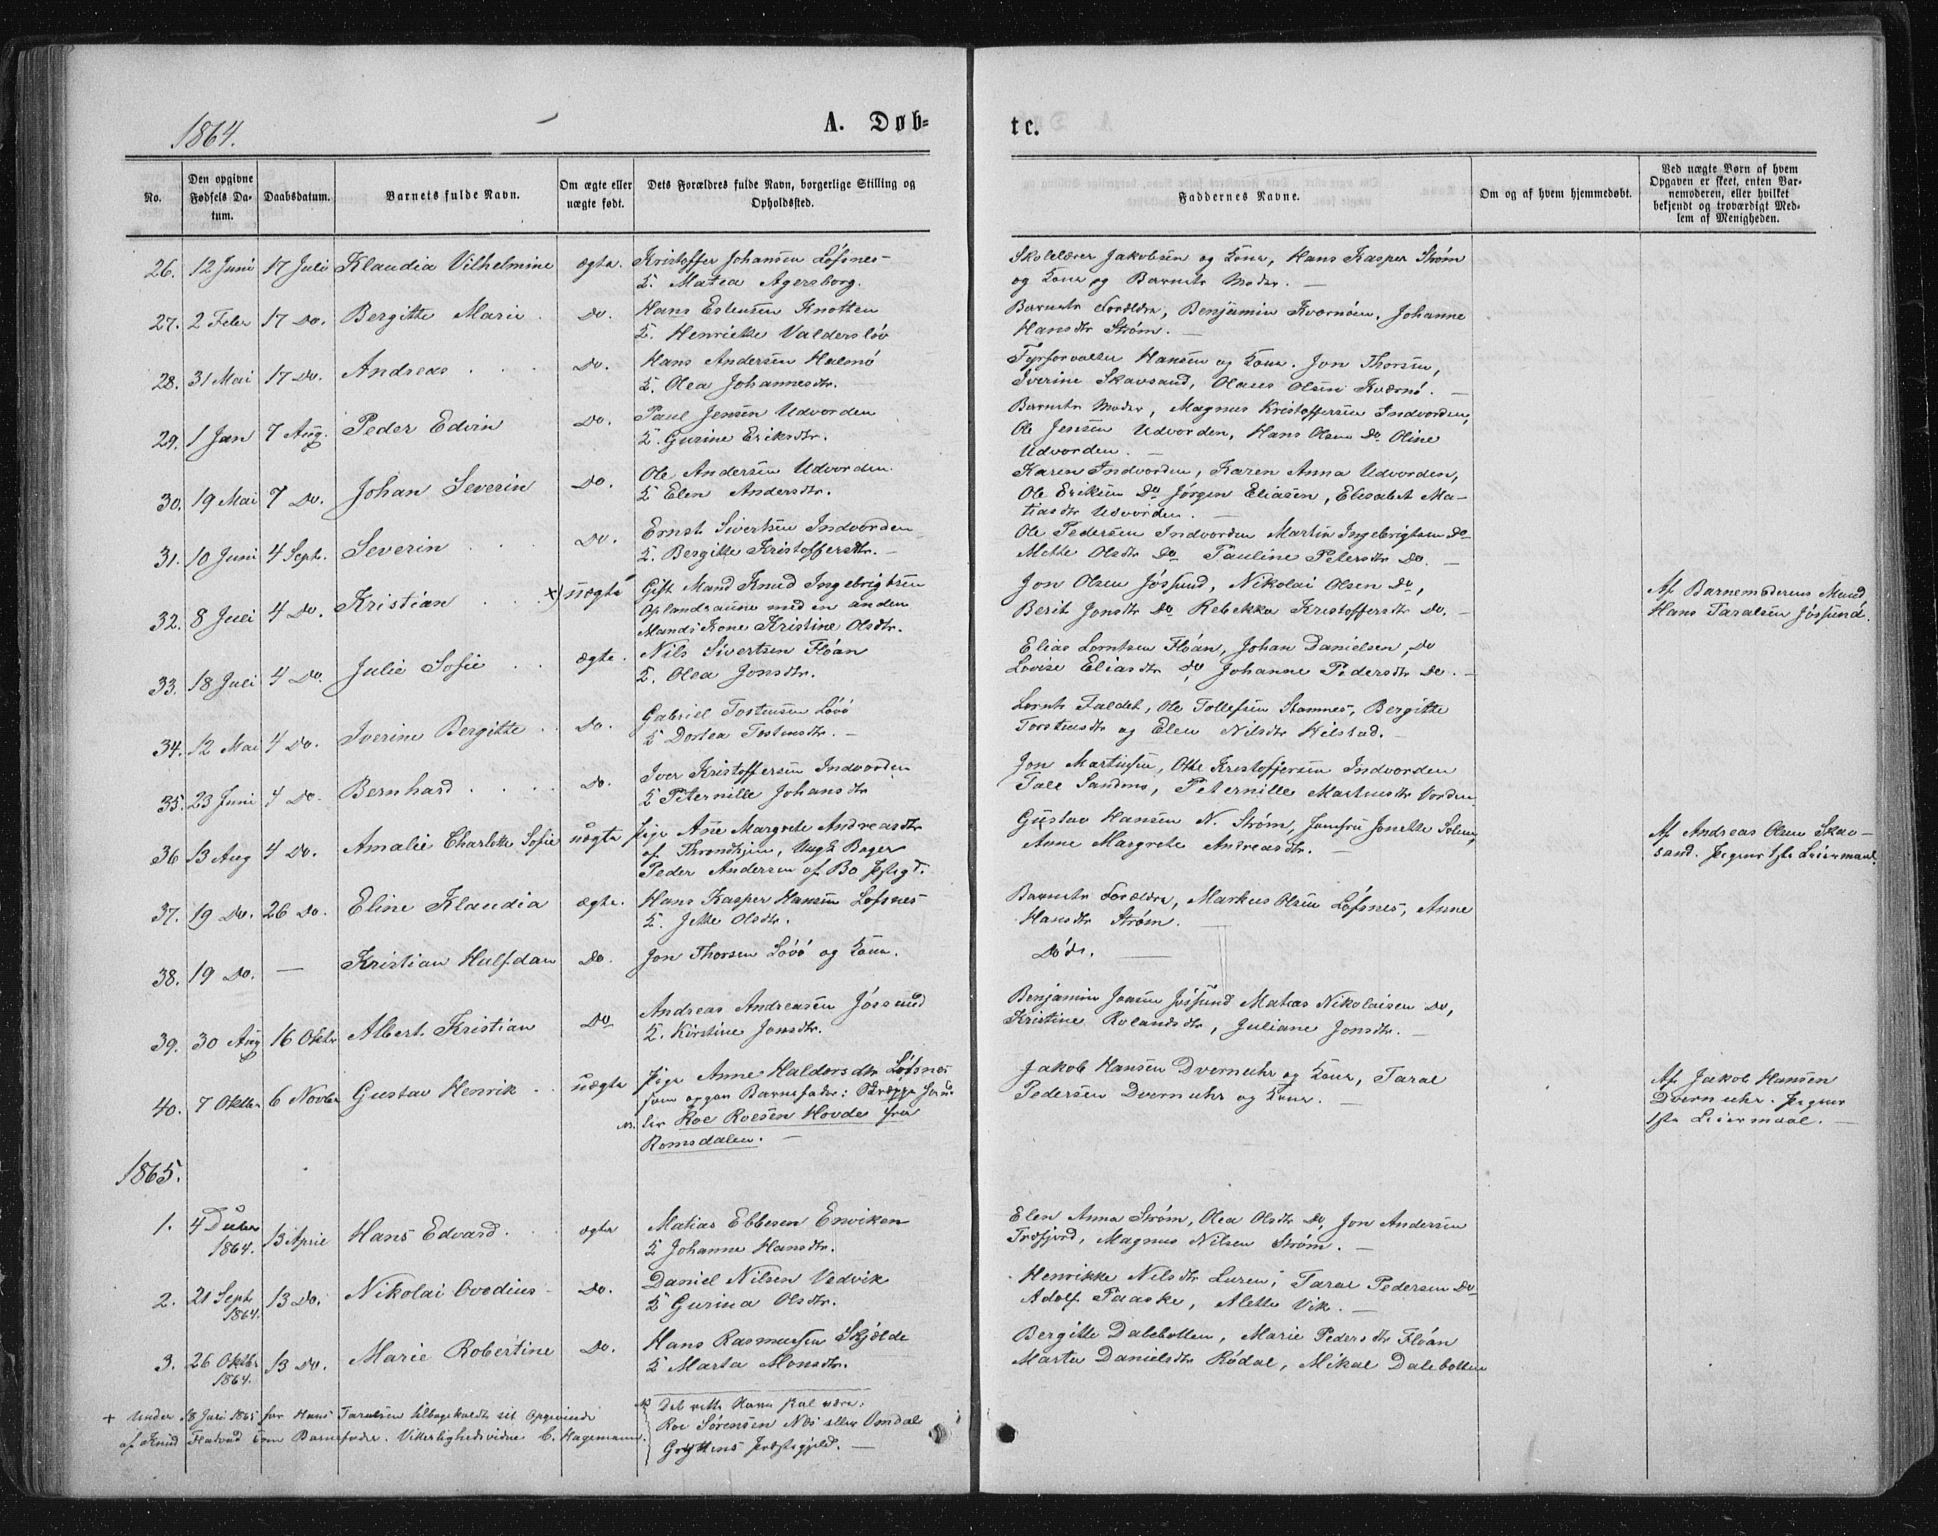 1864.
A. Døb-
te.
No.
Den opgivne Fødsels Datum.
Daabsdatum.
Barnets fulde Navn.
Om ægte eller uægte født.
Dets Forældres fulde Navn, borgerlige Stilling og Opholdssted.
Faddernes Navne.
Om og af hvem hjemmedøbt.
Ved uægte Børn af hvem Opgaven er skeet, enten Barnemoderen, eller hvilket bekjendt og troværdigt Medlem af Menigheden.
26. 12 Juni 17 Juli Klaudia Vilhelmine ægte. Kristoffer Johansen Løfsnes-
K. Matea Agersborg.
Skolelærer Jakobsen og Kone, Hans Kasper Strøm
og Kone og Barnets Moder. —
27. 2 Feber 17 Do. Bergitte Marie Do. Hans Estensen Knotten
K. Henrikke Valdersløv
Barnets Forældre, Benjamin Kvernøen, Johanne
Hansdtr Strøm. —
28. 31 Mai 17 Do. Andreas Do. Hans Andersen Halmø
K. Olea Johannesdtr.
Fyrforvalter Hansen og Kone. Jon Thorsen,
Iverine Skavsand, Olaus Olsen Kværnø. —
29. 1 Jan 7 Aug. Peder Edvin Do. Paul Jensen Udvorden
K. Gurine Eriksdtr.
Barnets Moder, Magnus Kristoffersen Indvorden,
Ole Jensen Udvorden, Hans Olsen Do Oline
Udvorden. —
30. 19 Mai 7 Do. Johan Severin Do. Ole Andersen Udvorden
K Elen Andersdtr.
Karen Indvorden, Karen Anna Udvorden,
Ole Eriksen Do Jørgen Eliasen, Elisabet Ma-
tiasdtr Udvorden. —
31. 10 Juni 4 Sept. Severin Do. Ernst Sivertsen Indvorden
K. Bergitte Kristoffersdtr. —
Ole Pedersen Indvorden Martin Ingebrigtsen Do
Mette Olsdtr Do Pauline Petersdtr Do. —
32. 8 Juli 4 Do. Kristian x) uægte Gift Mand Knud Ingebrigtsen
Oplandsaune med en anden
Mands Kone Kristine Olsdtr.
Jon Olsen Jøssund, Nikolai Olsen Do,
Berit Jonsdtr Do Rebekka Kristoffersdtr Do. —
Af Barnemoderens Mand
Hans Taralsen Jøssund.
33. 18 Juli 4 Do. Julie Sofie ægte. Nils Sivertsen Fløan
K. Olea Jonsdtr.
Elias Lorntsen Fløan, Johan Danielsen, Do
Lovise Eliasdtr Do Johanne Pedersdtr Do. —
34. 12 Mai 4 Do. Iverine Bergitte Do. Gabriel Tostensen Løvø
K Dortea Tostensdtr. —
Lornts Faldet, Ole Tollefsen Stamnes, Bergitte
Torstensdtr og Elen Nilsdtr Hilstad. —
35. 23 Juni 4 Do. Bernhard Do. Iver Kristoffersen Indvorden
K Peternille Johansdtr
Jon Martinsen, Otte Kristoffersen Indvorden
Tale Sandmo, Peternille Martinsdtr Vorden
36 13 Aug 4 Do. Amalie Charlotte Sofie uægte Pige Ane Margrete Andreasdtr
af Throndhjem, Ungk Bager
Peder Andersen af Bo Pstgd.
Gustav Hansen N. Strøm, Jomfru Jonette Solem,
Anne Margrete Andreasdtr. —
Af Andreas Olsen Skav-
sand. Pigens 1ste Leiermaal.
37. 19 Do. 26 Do. Eline Klaudia ægte. Hans Kasper Hansen Løfsnes
K. Jette Olsdtr.
Barnets Forældre, Markus Olsen Løfsnes, Anne
Hansdtr Strøm. —
38. 19 Do. — Kristian Halfdan Do. Jon Thorsen Løvø og Kone.
Død. —
39. 30 Aug 16 Oktbr Albert Kristian Do Andreas Andreasen Jøssund
K. Kirstine Jonsdtr.
Benjamin Jonsen Jøssund Matias Nikolaisen Do,
Kristine Rolandsdtr, Juliane Jonsdtr. —
40. 7 Oktber 6 Novber Gustav Henrik uægte Pige Anne Haldorsdtr Løfsnes
som opgav Barnefader:
Roe Roesen Hovde fra
Romsdalen. —
Jakob Hansen Dvernuhr og Kone, Taral
Pedersen Dvernuhr og Kone. —
Af Jakob Hansen
Dvernuhr. Pigens
1ste Leiermaal. —
1865.
1. 4 Decber 1864. 13 April Hans Edvard. ægte Matias Ebbesen Enviken
K Johanne Hansdtr.
Elen Anna Strøm, Olea Olsdtr Do, Jon Andersen
Træfjord, Magnus Nilsen Strøm. —
2. 21 Sept 1864. 13 Do. Nikolai Ovedius Do. Daniel Nilsen Vedvik
K Gurina Olsdtr.
Henrikke Nilsdtr Luren, Taral Pedersen Do
Adolf Paaske, Alette Vik. —
3. 26 Oktbr 1864. 13 Do. Marie Robertine Do. Hans Rasmussen Skjelde
K Marta Monsdtr.
Bergitte Dalebotten, Marie Pedersdtr Fløan
Marta Danielsdtr Rødal, Mikal Dalebotten
+ Under 18 Juli 1865 har Hans Taralsen tilbagekaldt sit Opgivende
af Knud Fladvad som Barnefader. Vitterlighedsvidne C. Hagemann.
Det rette Navn skal være:
Roe Sørensen Næs eller Omdal
Gryttens Præstegjeld. —